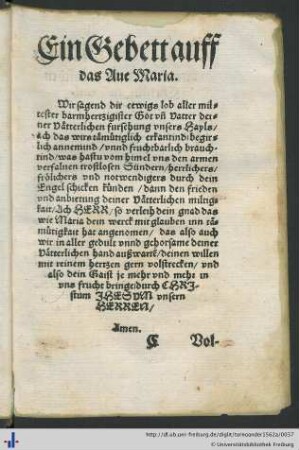 Ein Gebett auff
das Aue Maria.
Wir sagend dir ewigs lob aller mil-
tester barmhertzigister Got vñ Vatter dei-
ner Vätterlichen fürsehung vnsers Hayls/
ach das wirs tämütigklich erkantind: begir-
lich annemind / vnnd fruchtbarlich brauch-
tind / was hastu vom himel vns den armen
verfalnen trostlosen Sündern / herrlichers/
frölichers vnd notwendigers durch dein
Engel schicken künden / dann den frieden
vnd anbietung deiner Vätterlichen miltig-
kait / Ach HERR / so verleih dein gnad das
wie Maria dein werck mit glauben vnn tä-
mütigkait hat angenomen / das also auch
wir in aller gedult vnnd gehorsame deiner
Vätterlichen hand außwartt / deinen willen
mit reinem hertzen gern volstrecken / vnd
also dein Gaist je mehr vnd mehr in
vns frucht bringe: durch CHRI-
stum JHESVM vnsern
HERREN /
Amen.
C Vol-
http://dl.ub.uni-freiburg.de/diglit/toreoander1562a/0057
© Universitätsbibliothek Freiburg